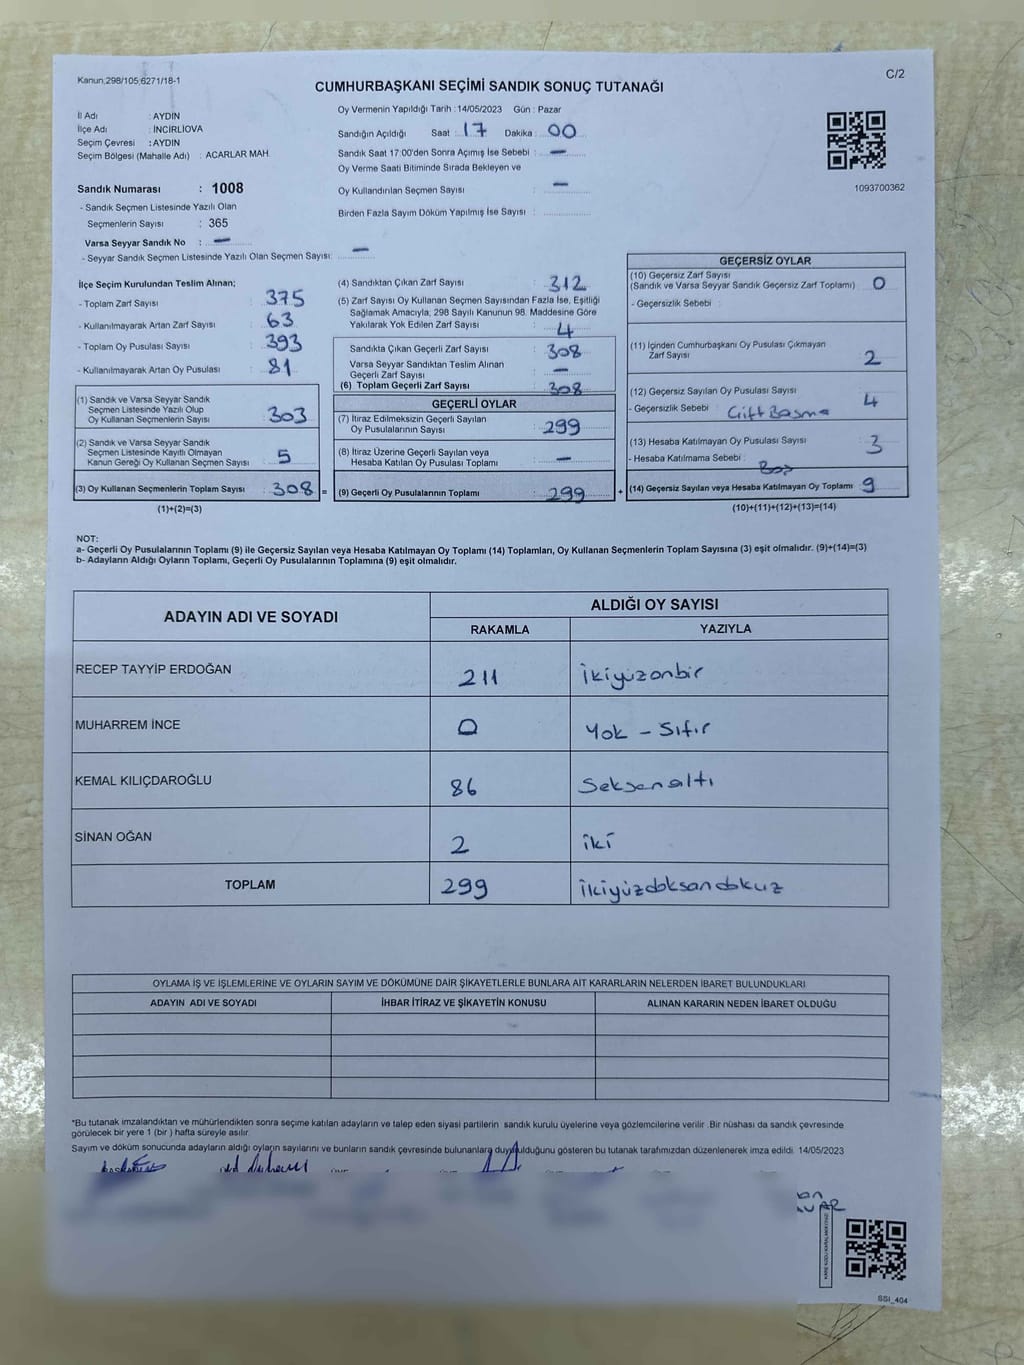 Kanun,298/105;6271/18-1
C/2
CUMHURBAŞKANI SEÇİMİ SANDIK SONUÇ TUTANAĞI
İl Adı : AYDIN
İlçe Adı : İNCİRLİOVA
Seçim Çevresi : AYDIN
Seçim Bölgesi (Mahalle Adı) : ACARLAR MAH.
Sandık Numarası : 1008
- Sandık Seçmen Listesinde Yazılı Olan
Seçmenlerin Sayısı : 365
Varsa Seyyar Sandık No : —
- Seyyar Sandık Seçmen Listesinde Yazılı Olan Seçmen Sayısı: —
Oy Vermenin Yapıldığı Tarih :14/05/2023 Gün : Pazar
Sandığın Açıldığı Saat : 17 Dakika : 00
Sandık Saat 17:00'den Sonra Açımış İse Sebebi : —
Oy Verme Saati Bitiminde Sırada Bekleyen ve
Oy Kullandırılan Seçmen Sayısı : —
Birden Fazla Sayım Döküm Yapılmış İse Sayısı :
1093700362
İlçe Seçim Kurulundan Teslim Alınan;
- Toplam Zarf Sayısı : 375
- Kullanılmayarak Artan Zarf Sayısı : 63
- Toplam Oy Pusulası Sayısı : 393
- Kullanılmayarak Artan Oy Pusulası : 81
(1) Sandık ve Varsa Seyyar Sandık
Seçmen Listesinde Yazılı Olup
Oy Kullanan Seçmenlerin Sayısı : 303
(2) Sandık ve Varsa Seyyar Sandık
Seçmen Listesinde Kayıtlı Olmayan
Kanun Gereği Oy Kullanan Seçmen Sayısı : 5
(3) Oy Kullanan Seçmenlerin Toplam Sayısı : 308 =
(1)+(2)=(3)
(4) Sandıktan Çıkan Zarf Sayısı : 312
(5) Zarf Sayısı Oy Kullanan Seçmen Sayısından Fazla İse, Eşitliği
Sağlamak Amacıyla; 298 Sayılı Kanunun 98. Maddesine Göre
Yakılarak Yok Edilen Zarf Sayısı : 4
Sandıkta Çıkan Geçerli Zarf Sayısı : 308
Varsa Seyyar Sandıktan Teslim Alınan
Geçerli Zarf Sayısı : —
(6) Toplam Geçerli Zarf Sayısı : 308
GEÇERLİ OYLAR
(7) İtiraz Edilmeksizin Geçerli Sayılan
Oy Pusulalarının Sayısı : 299
(8) İtiraz Üzerine Geçerli Sayılan veya
Hesaba Katılan Oy Pusulası Toplamı : —
(9) Geçerli Oy Pusulalarının Toplamı : 299 +
GEÇERSİZ OYLAR
(10) Geçersiz Zarf Sayısı
(Sandık ve Varsa Seyyar Sandık Geçersiz Zarf Toplamı) : 0
- Geçersizlik Sebebi :
(11) İçinden Cumhurbaşkanı Oy Pusulası Çıkmayan
Zarf Sayısı : 2
(12) Geçersiz Sayılan Oy Pusulası Sayısı : 4
- Geçersizlik Sebebi : Çift Basma
(13) Hesaba Katılmayan Oy Pusulası Sayısı : 3
- Hesaba Katılmama Sebebi : Boş
(14) Geçersiz Sayılan veya Hesaba Katılmayan Oy Toplamı : 9
(10)+(11)+(12)+(13)=(14)
NOT:
a- Geçerli Oy Pusulalarının Toplamı (9) ile Geçersiz Sayılan veya Hesaba Katılmayan Oy Toplamı (14) Toplamları, Oy Kullanan Seçmenlerin Toplam Sayısına (3) eşit olmalıdır. (9)+(14)=(3)
b- Adayların Aldığı Oyların Toplamı, Geçerli Oy Pusulalarının Toplamına (9) eşit olmalıdır.
ADAYIN ADI VE SOYADI
ALDIĞI OY SAYISI
RAKAMLA YAZIYLA
RECEP TAYYİP ERDOĞAN 211 ikiyüzonbir
MUHARREM İNCE 0 Yok - Sıfır
KEMAL KILIÇDAROĞLU 86 Seksenaltı
SİNAN OĞAN 2 iki
TOPLAM 299 ikiyüzdoksandokuz
OYLAMA İŞ VE İŞLEMLERİNE VE OYLARIN SAYIM VE DÖKÜMÜNE DAİR ŞİKAYETLERLE BUNLARA AİT KARARLARIN NELERDEN İBARET BULUNDUKLARI
ADAYIN ADI VE SOYADI İHBAR İTİRAZ VE ŞİKAYETİN KONUSU ALINAN KARARIN NEDEN İBARET OLDUĞU
*Bu tutanak imzalandıktan ve mühürlendikten sonra seçime katılan adayların ve talep eden siyasi partilerin sandık kurulu üyelerine veya gözlemcilerine verilir .Bir nüshası da sandık çevresinde
görülecek bir yere 1 (bir ) hafta süreyle asılır.
Sayım ve döküm sonucunda adayların aldığı oyların sayılarını ve bunların sandık çevresinde bulunanlara duyurulduğunu gösteren bu tutanak tarafımızdan düzenlenerek imza edildi. 14/05/2023
SSI_404